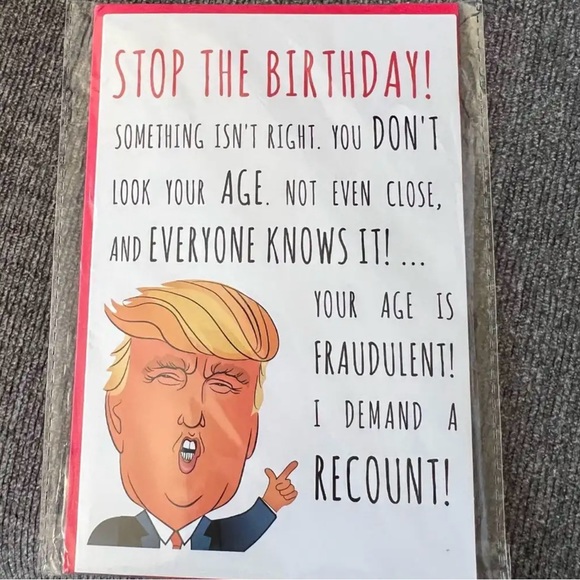 STOP THE BIRTHDAY!
SOMETHING ISN'T RIGHT. YOU DON'T
LOOK YOUR AGE. NOT EVEN CLOSE,
AND EVERYONE KNOWS IT! ...
YOUR AGE IS
FRAUDULENT!
I DEMAND A
RECOUNT!